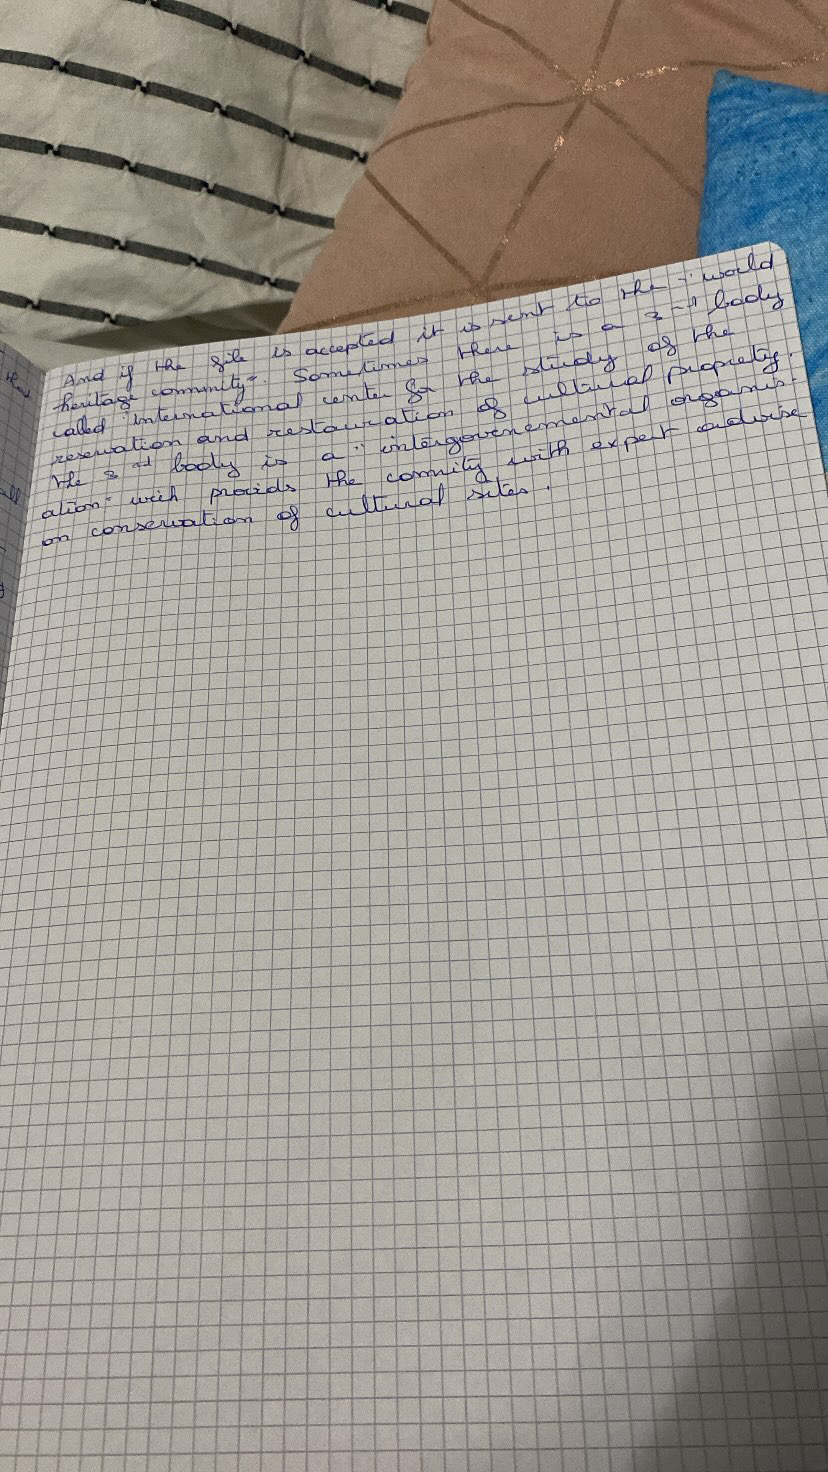 And if the file is accepted it is sent to the "world
heritage comunity". Sometimes there is a 3rd body
called "international center for the study of the
reservation and restauration of cultural propriety.
the 3rd body is a "intergovernemental organis-
ation" wich provids the comity with expert advise
on conservation of cultural sites.